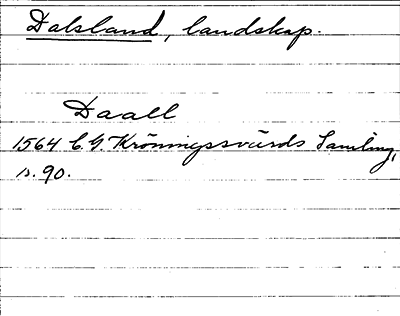 Dalsland, landskap.
Daall
1564 C.G. Kröningssvärds Samling,
s. 90.